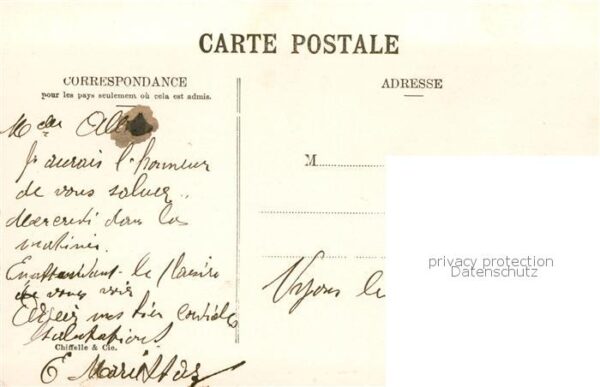 CARTE POSTALE
CORRESPONDANCE
pour les pays seulement où cela est admis.
ADRESSE
M
J'aurais l'honneur
de vous saluer
mercredi dans la
matinée.
En attendant le plaisir
de vous voir
mes bien cordiales
salutations
Chiffelle & Cie.
E
privacy protection
Datenschutz